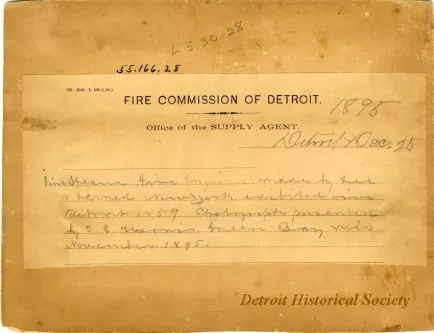 L 5.30.28
55.166.28
FIRE COMMISSION OF DETROIT.
1895
Office of the SUPPLY AGENT.
Detroit Dec. 25
First Steam Fire Engine made by Lee
& Larned New York exhibited in
Detroit 1859. Photograph presented
by S. E. Green Bay Wis.
November 1895.
Detroit Historical Society